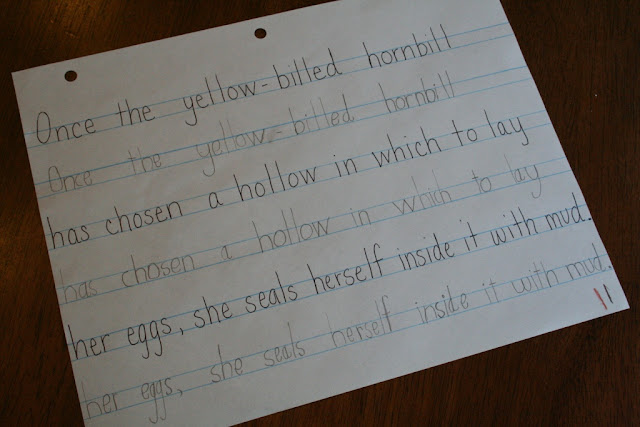 Once the yellow-billed hornbill
Once the yellow-billed hornbill
has chosen a hollow in which to lay
has chosen a hollow in which to lay
her eggs, she seals herself inside it with mud.
her eggs, she seals herself inside it with mud.
11